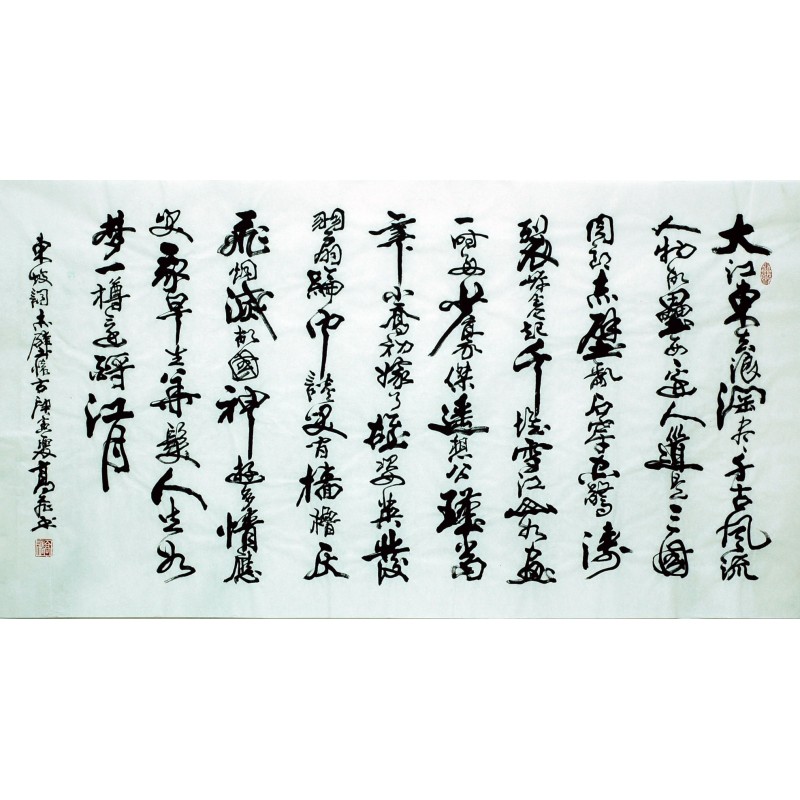 大江東去浪淘盡千古風流
人物故壘西邊人道是三國
周郎赤壁亂石穿空驚濤
裂岸卷起千堆雪江山如畫
一時多少豪傑遥想公瑾當
年小喬初嫁了雄姿英發
羽扇綸巾談笑間檣櫓灰
飛烟滅故國神遊多情應
笑我早生華髮人生如
梦一樽還酹江月
東坡詞赤壁懷古庚寅夏高書